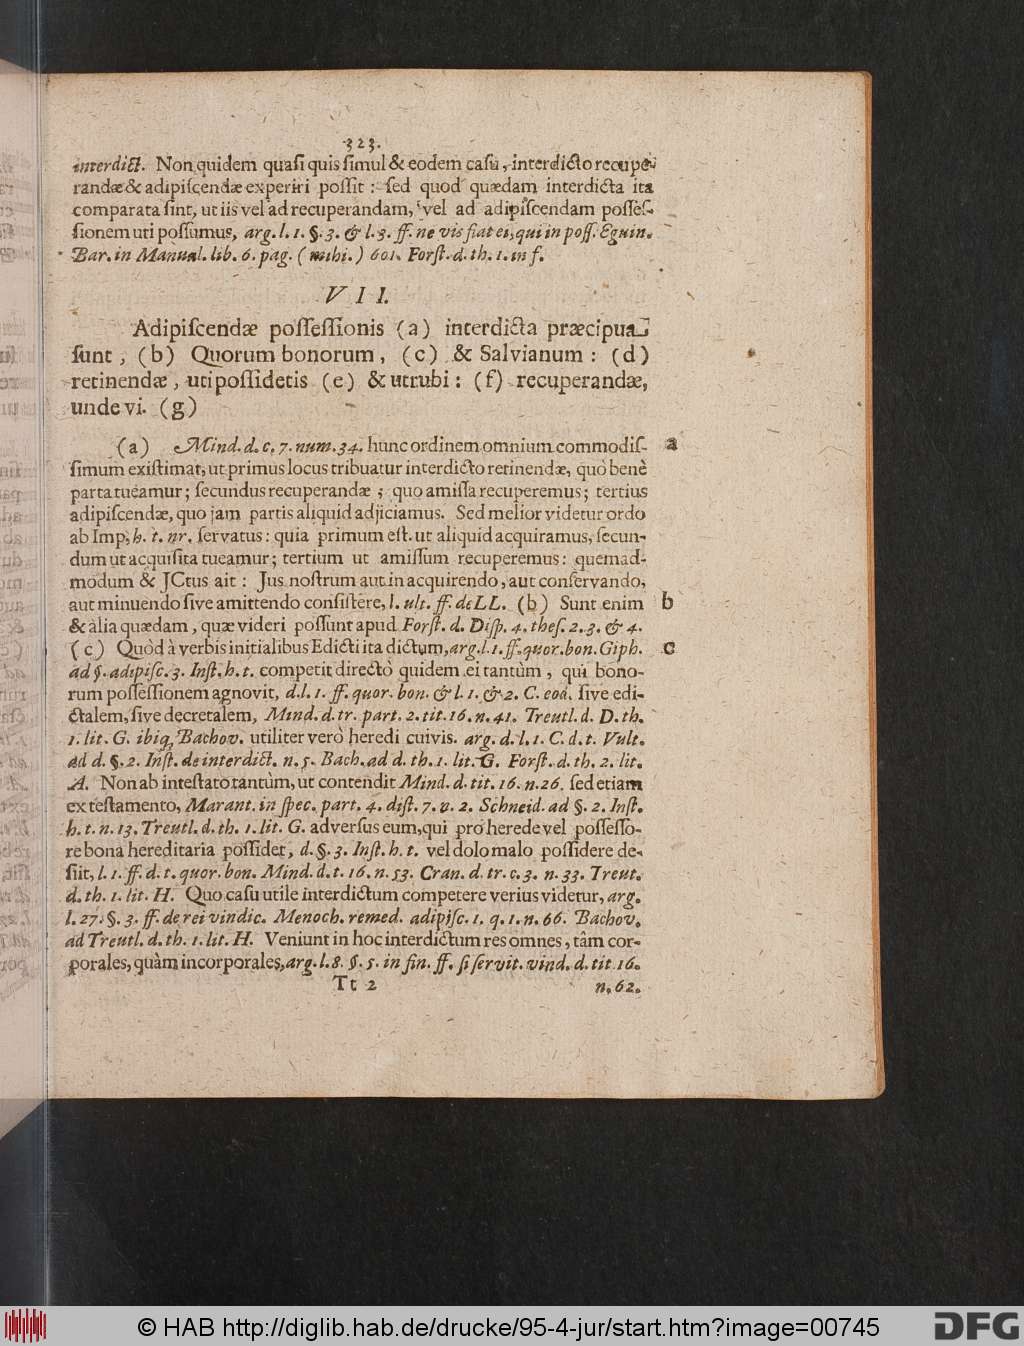 323.
interdict. Non quidem quasi quis simul & eodem casu, interdicto recupe-
randæ & adipiscendæ experiri possit: sed quod quædam interdicta ita
comparata sint, ut iis vel ad recuperandam, vel ad adipiscendam posses-
sionem uti possumus, arg. l. 1. §. 3. & l. 3. ff. ne vis fiat ei, qui in poss. Eguin.
Bar. in Manual. lib. 6. pag. (mihi.) 601. Forst. d. th. 1. in f.
VII.
Adipiscendæ possessionis (a) interdicta præcipua
sunt, (b) Quorum bonorum, (c) & Salvianum: (d)
retinendæ, uti possidetis (e) & utrubi: (f) recuperandæ,
unde vi. (g)
(a) Mind. d. c. 7. num. 34. hunc ordinem omnium commodis- a
simum existimat, ut primus locus tribuatur interdicto retinendæ, quò benè
parta tueamur; secundus recuperandæ, quo amissa recuperemus; tertius
adipiscendæ, quo jam partis aliquid adjiciamus. Sed melior videtur ordo
ab Imp. h. t. nr. servatus: quia primum est. ut aliquid acquiramus, secun-
dum ut acquisita tueamur; tertium ut amissum recuperemus: quemad-
modum & JCtus ait: Jus nostrum aut in acquirendo, aut conservando,
aut minuendo sive amittendo consistere, l. ult. ff. de LL. (b) Sunt enim b
& alia quædam, quæ videri possunt apud Forst. d. Disp. 4. thes. 2. 3. & 4.
(c) Quòd à verbis initialibus Edicti ita dictum, arg. l. 1. ff. quor. bon. Giph. c
ad §. adipisc. 3. Inst. h. t. competit directò quidem ei tantùm, qui bono-
rum possessionem agnovit, d. l. 1. ff. quor. bon. & l. 1. & 2. C. eod. sive edi-
ctalem, sive decretalem, Mind. d. tr. part. 2. tit. 16. n. 41. Treutl. d. D. th.
1. lit. G. ibiq; Bachov. utiliter verò heredi cuivis. arg. d. l. 1. C. d. t. Vult.
ad d. §. 2. Inst. de interdict. n. 5. Bach. ad d. th. 1. lit. G. Forst. d. th. 2. lit.
A. Non ab intestato tantùm, ut contendit Mind. d. tit. 16. n. 26. sed etiam
ex testamento, Marant. in spec. part. 4. dist. 7. v. 2. Schneid. ad §. 2. Inst.
h. t. n. 13. Treutl. d. th. 1. lit. G. adversus eum, qui pro herede vel possesso-
re bona hereditaria possidet, d. §. 3. Inst. h. t. vel dolo malo possidere de-
siit, l. 1. ff. d. t. quor. bon. Mind. d. t. 16. n. 53. Cran. d. tr. c. 3. n. 33. Treut.
d. th. 1. lit. H. Quo casu utile interdictum competere verius videtur, arg.
l. 27. §. 3. ff. de rei vindic. Menoch. remed. adipisc. 1. q. 1. n. 66. Bachov.
ad Treutl. d. th. 1. lit. H. Veniunt in hoc interdictum res omnes, tâm cor-
porales, quàm incorporales, arg. l. 8. §. 5. in fin. ff. si servit. vind. d. tit. 16.
Tt 2 n. 62.
© HAB http://diglib.hab.de/drucke/95-4-jur/start.htm?image=00745
DFG